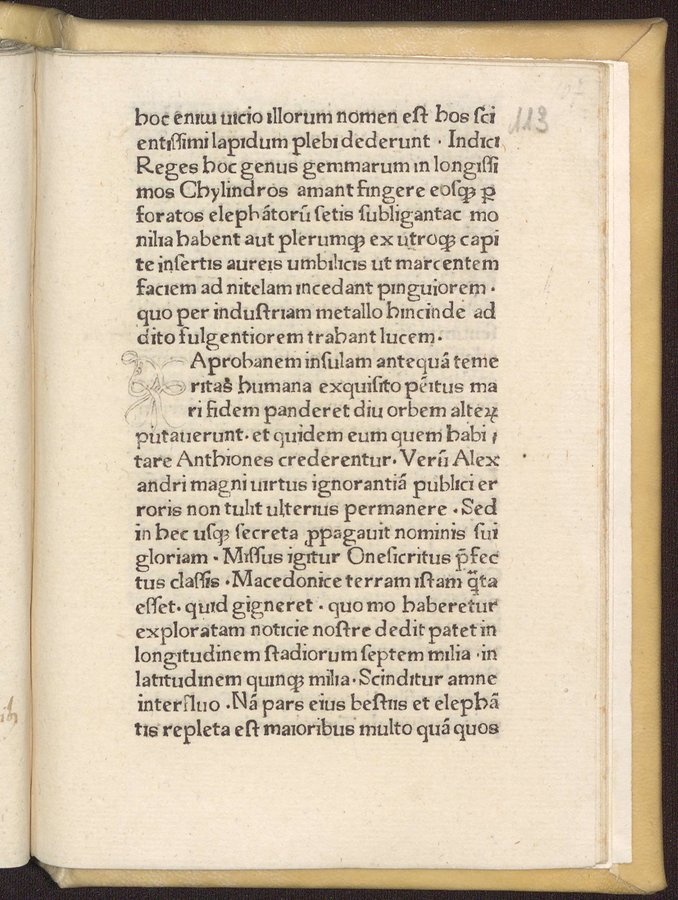 113
hoc eniꝫ uicio illorum nomen eſt hos ſci
entiſſimi lapidum plebi dederunt · Indici
Reges hoc genus gemmarum in longiſſi
mos Chylindros amant fingere eoſqꝫ ꝑ
foratos elephātorū ſetis ſubligantac mo
nilia habent aut plerumqꝫ ex utroqꝫ capi
te inſertis aureis umbilicis ut marcentem
faciem ad nitelam incedant pinguiorem ·
quo per induſtriam metallo hincinde ad
dito fulgentiorem trahant lucem ·
TAprobanem inſulam antequā teme
ritas humana exquiſito pēitus ma
ri fidem panderet diu orbem alteꝝ
putauerunt · et quidem eum quem habi /
tare Anthiones crederentur · Verū Alex
andri magni uirtus ignorantiā publici er
roris non tulit ulterius permanere · Sed
in hec uſqꝫ ſecreta ꝓpagauit nominis ſui
gloriam · Miſſus igitur Oneſicritus p̄fec
tus claſſis · Macedonice terram iſtam q̄ta
eſſet · quid gigneret · quo mo haberetur
exploratam noticie noſtre dedit patet in
longitudinem ſtadiorum ſeptem milia · in
latitudinem quinqꝫ milia · Scinditur amne
interfluo · Nā pars eius beſtiis et elephā
tis repleta eſt maioribus multo quā quos